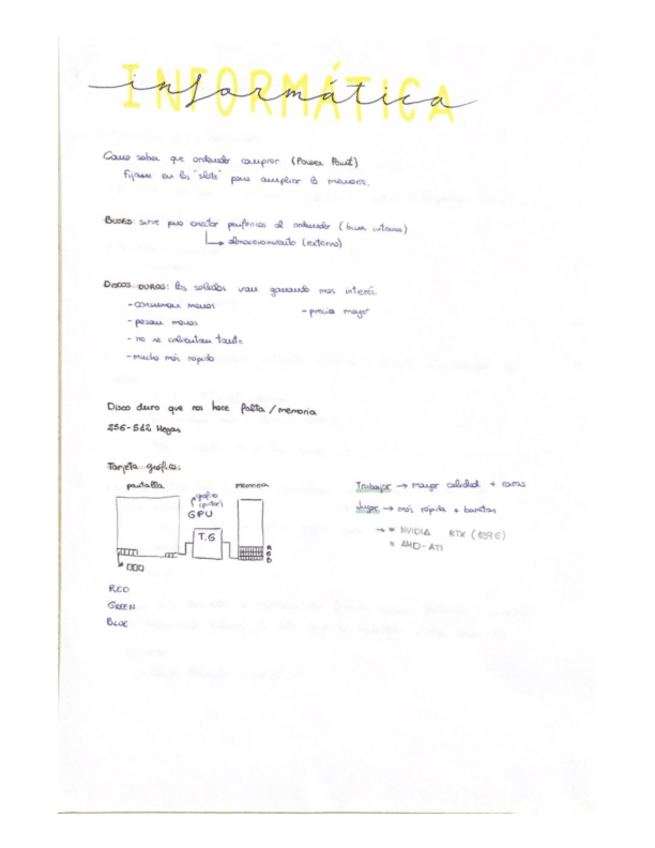 INFORMÁTICA
informática
Como saber que ordenador comprar (Power Point)
Fijarse en los "slots" para ampliar la memoria.
BUSES: sirve para conectar periféricos al ordenador (buses internos)
almacenamiento (externo)
DISCOS DUROS: los solidos van ganando mas interés.
- consumen menos
- precio mayor
- pesan menos
- no se calientan tanto
- mucho más rápido
Disco duro que nos hace falta / memoria
256-512 Megas
Tarjeta gráfica:
pantalla
memoria
Trabajar → mayor calidad + caras
GPU
Jugar → más rápida + baratas
T.G
→ * NVIDIA RTX (659€)
* AMD-ATI
R
G
B
RED
GREEN
BLUE